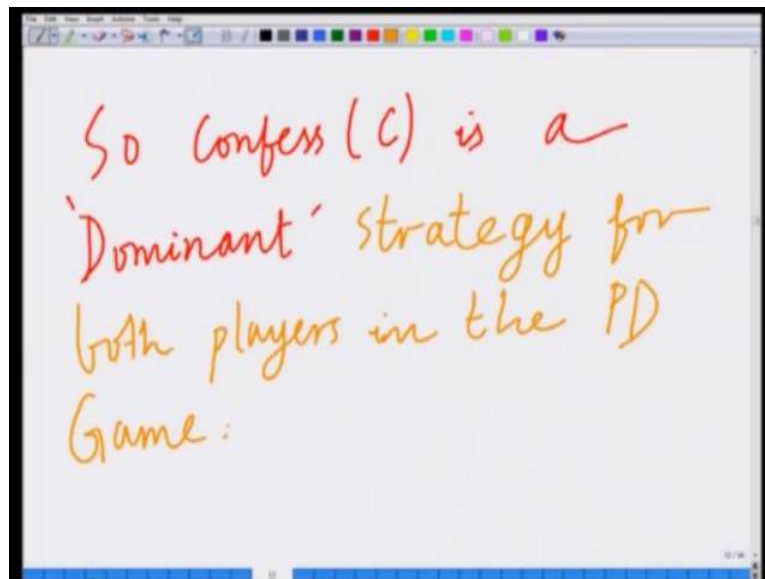 File Edit View Insert Actions Tools Help
So Confess (C) is a
'Dominant' strategy for
both players in the PD
Game: